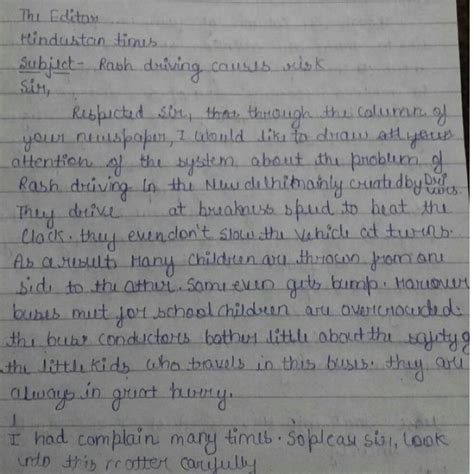 The Editor
Hindustan times
Subject- Rash driving causes risk
Sir,
Respected Sir, through the column of
your newspaper, I would like to draw all your
attention of the system about the problem of
Rash driving In the New delhi mainly created by Dri
vers.
They drive at breakness speed to beat the
clock. they even don't slow the vehicle at turns.
As a result Many children are thrown from one
side to the other. Some even gets bump. Moreover
buses meet for school children are overcrowded.
the bus conductors bother little about the safety of
the little kids who travels in this buses. they are
always in great hurry.
I had complain many times. So please sir, look
into this matter carefully